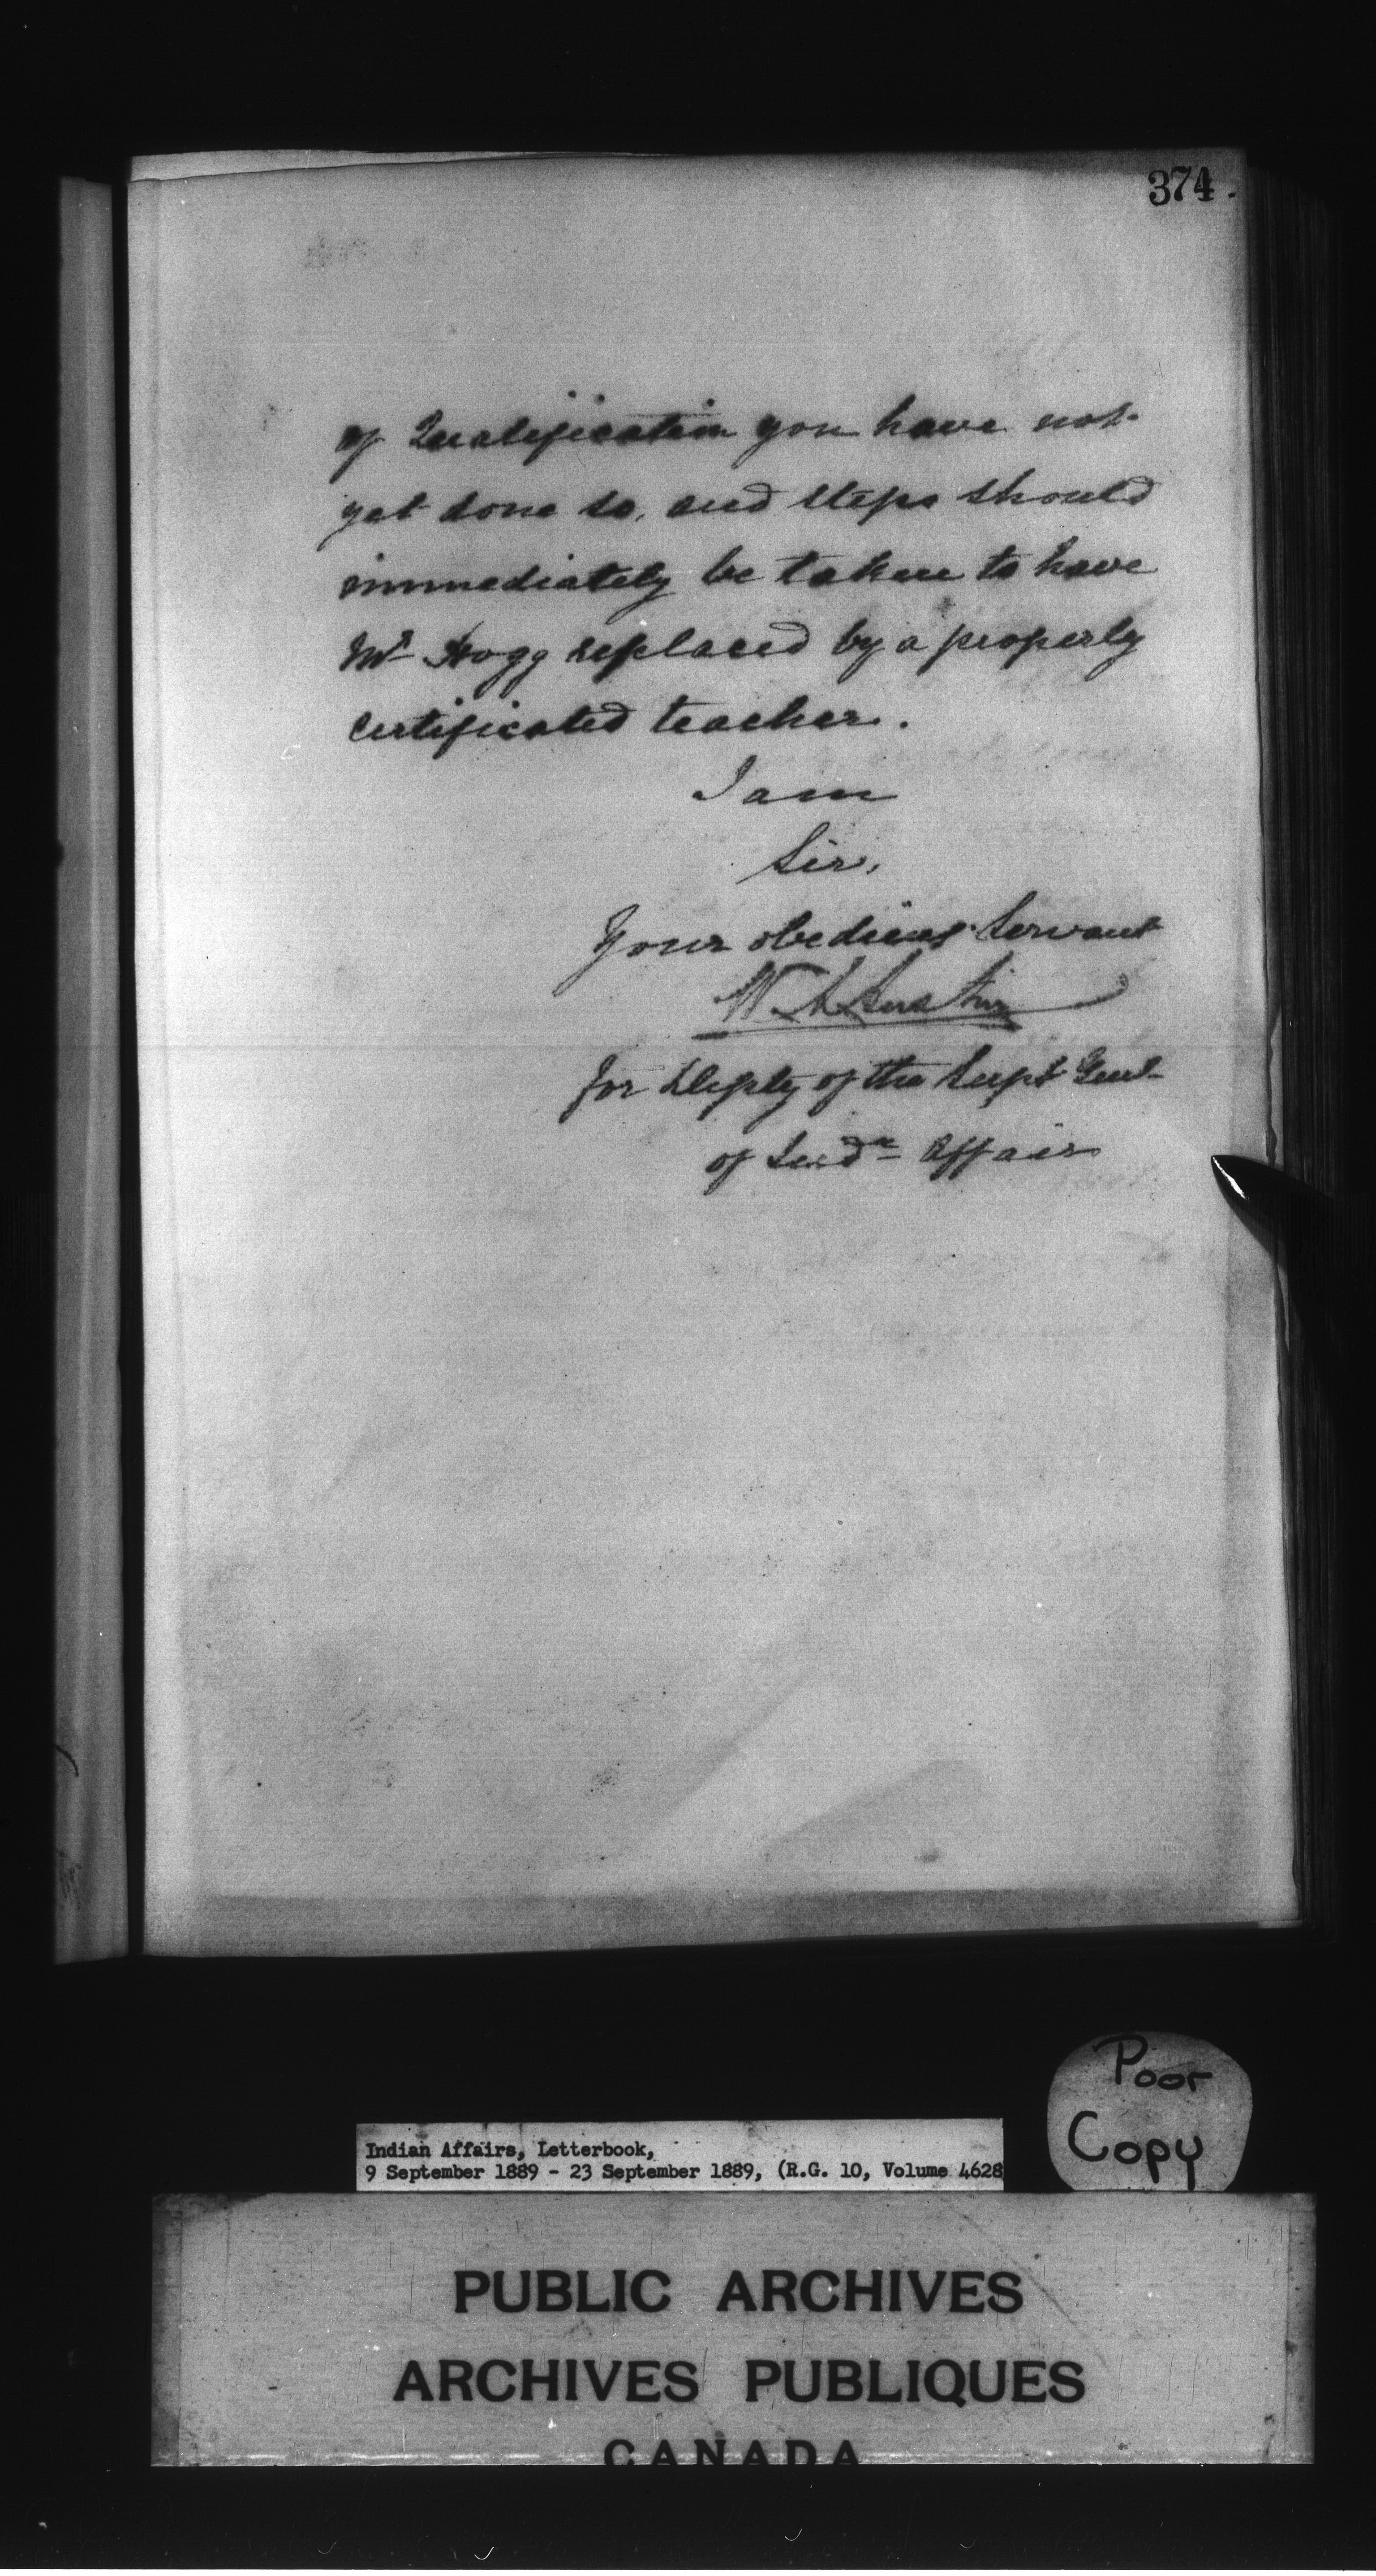 374.
of Qualification you have not
yet done so, and steps should
immediately be taken to have
Mr Hogg replaced by a properly
certificated teacher.
I am
Sir,
Your obedient Servant
W A Austin
for Depty of the Supt Genl
of Indn Affairs
Poor
Copy
Indian Affairs, Letterbook,
9 September 1889 - 23 September 1889, (R.G. 10, Volume 4628
PUBLIC ARCHIVES
ARCHIVES PUBLIQUES
CANADA